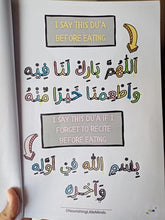 I SAY THIS DU'A
BEFORE EATING
اللَّهُمَّ بَارِكْ لَنَا فِيْهِ
وَأَطْعِمْنَا خَيْرًا مِّنْهُ
I SAY THIS DU'A IF I
FORGET TO RECITE
BEFORE EATING
بِسْمِ اللّٰهِ فِيْ أَوَّلِهِ
وَآخِرِهِ